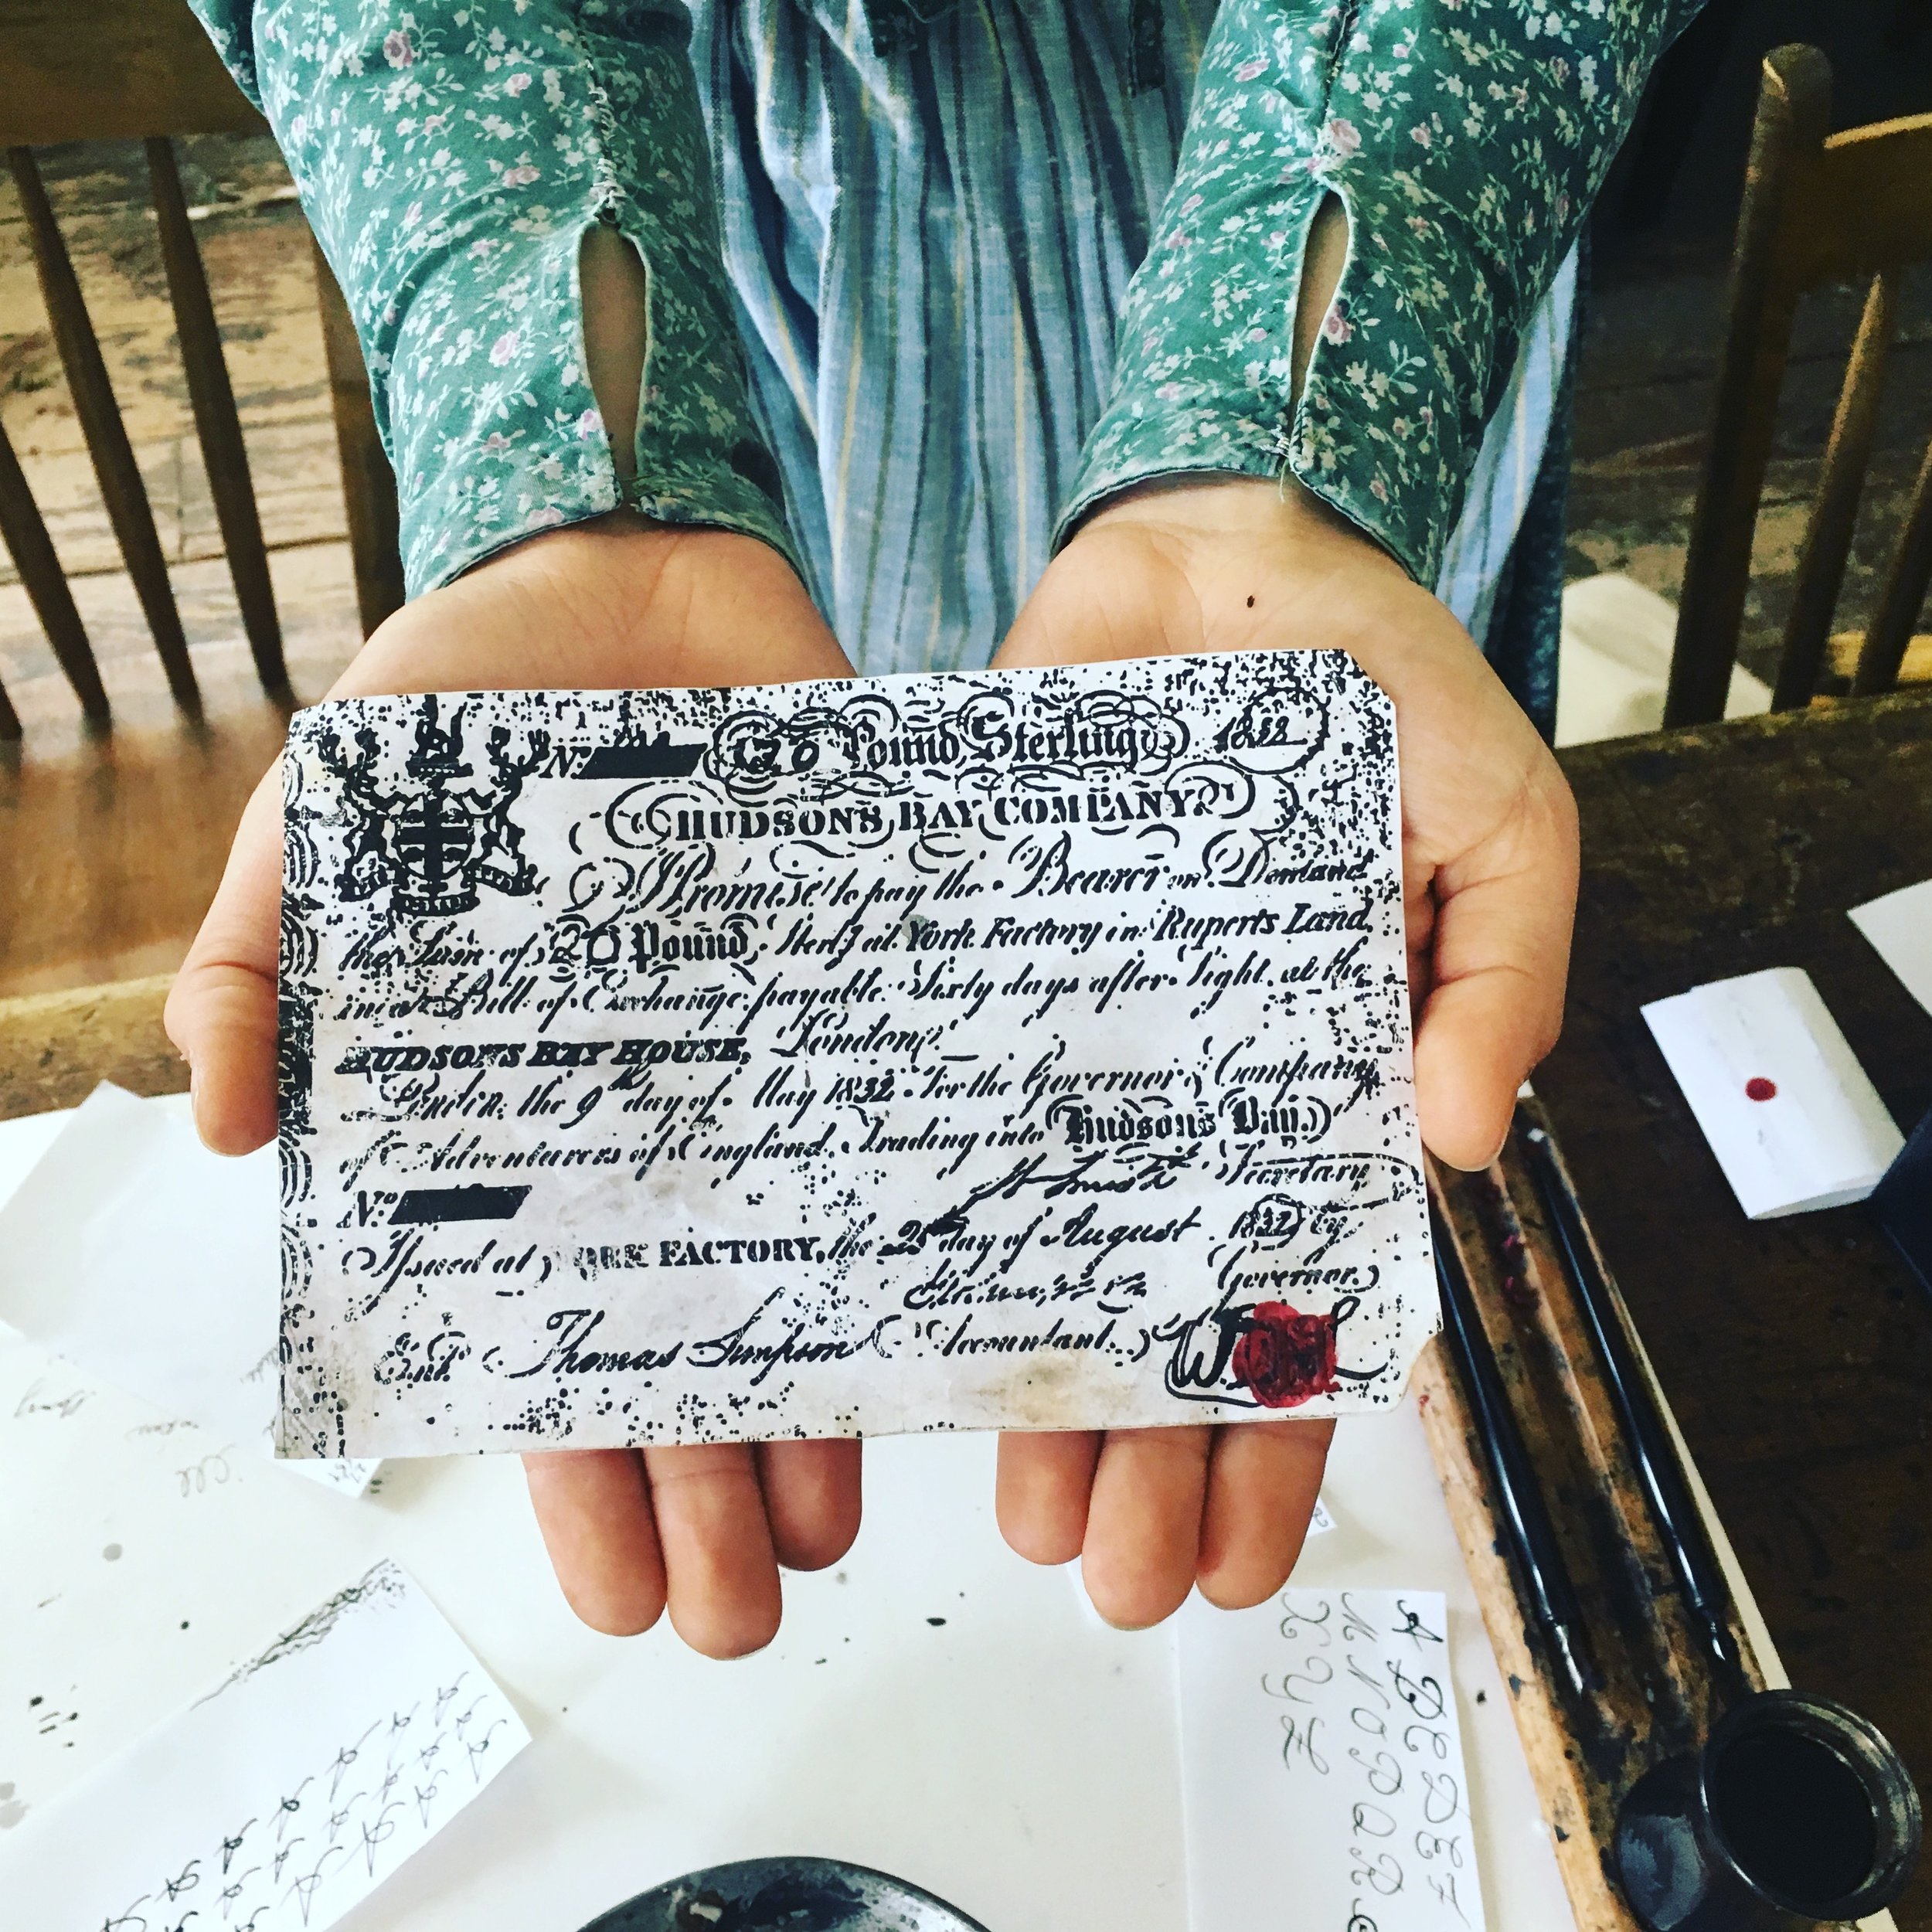 Nº 20 Pound Sterling 1832
HUDSON'S BAY COMPANY.
I Promise to pay the Bearer on Demand
the Sum of 20 Pound, Sterlg at York Factory in Ruperts Land
in a Bill of Exchange payable Sixty days after Sight at the
HUDSONS BAY HOUSE, London.
London, the 9th day of May 1832 For the Governor & Company
of Adventurers of England Trading into Hudsons Bay.
Secretary
Nº
Issued at YORK FACTORY, the 25 day of August 1832 by
Governor.
Ent. Thomas Simpson Accountant.
A B C D E F
M N O P Q R
X Y Z